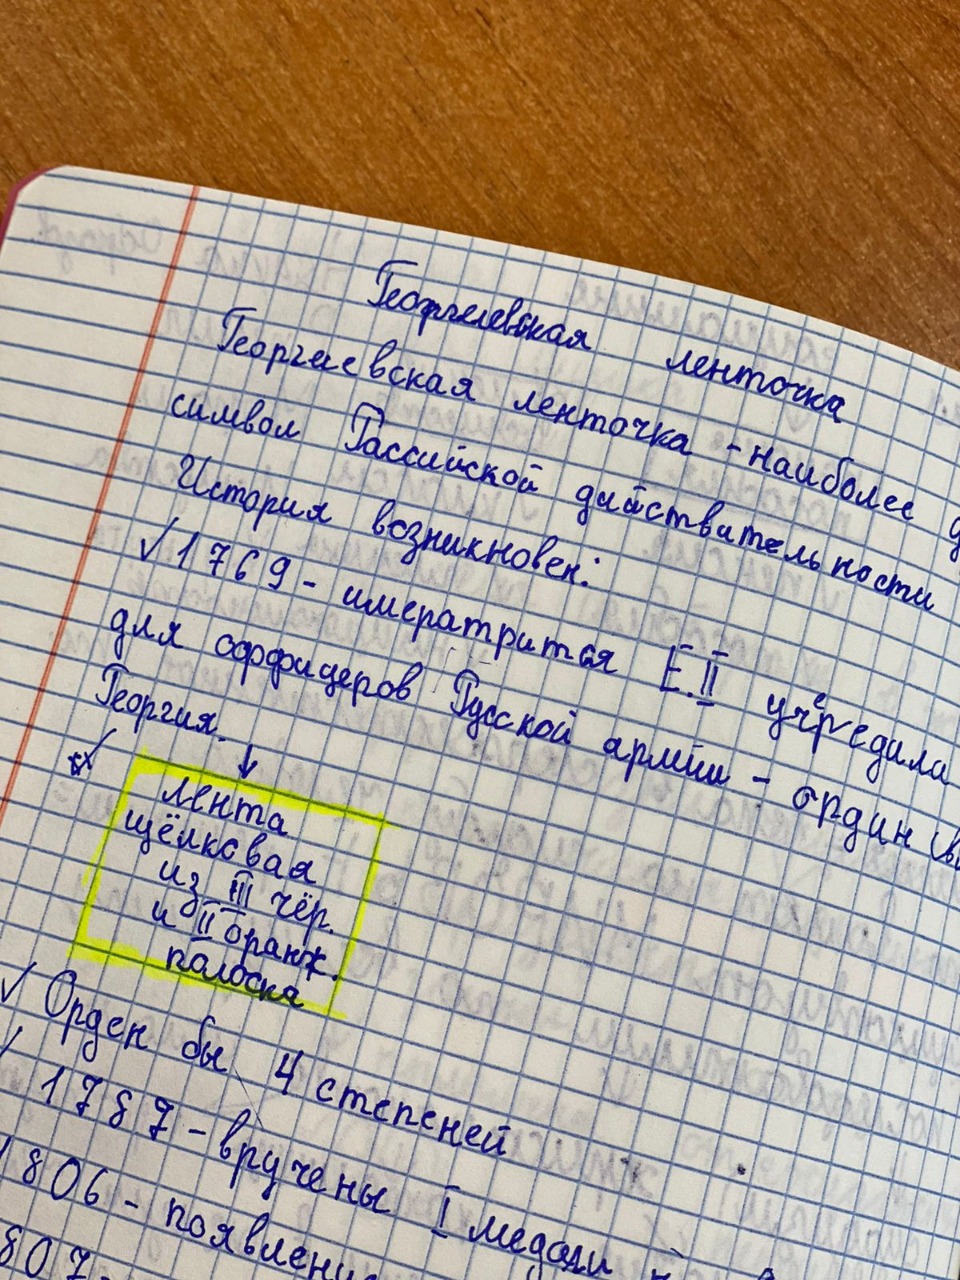 Георгиевская ленточка
Георгиевская ленточка - наиболее
символ Рассийской дийствательности
История возникновен:
✓ 1769 - имератрится Е.II учередила
для оффицеров Русской армии - ордин
Георгия.
лента
щёлковая
из III чёр.
и II оранж.
полоска
✓ Орден бы 4 степеней
1787 - вручены I медали
1806 - появлени
807